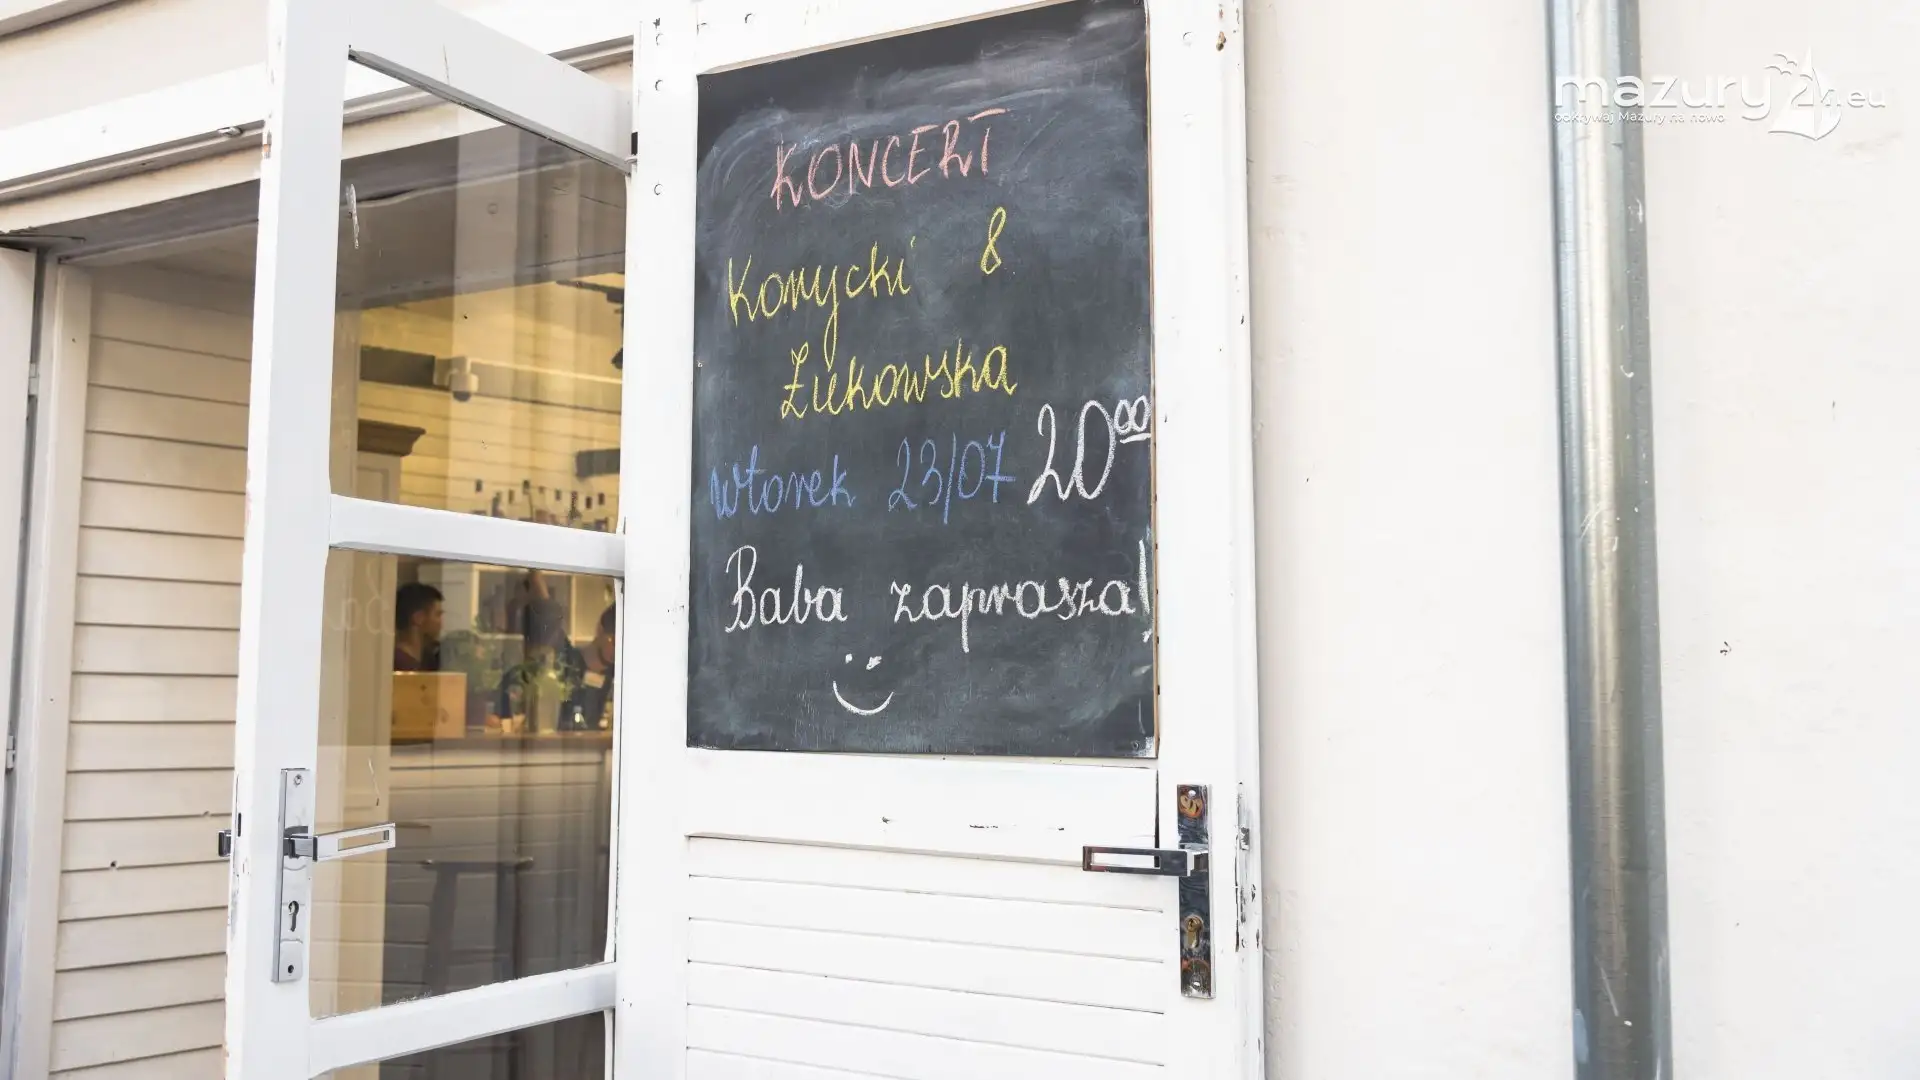 KONCERT
Konycki &
Żukowska
wtorek 23/07 20⁰⁰
Baba zaprasza!
mazury24.eu
odkrywaj Mazury na nowo